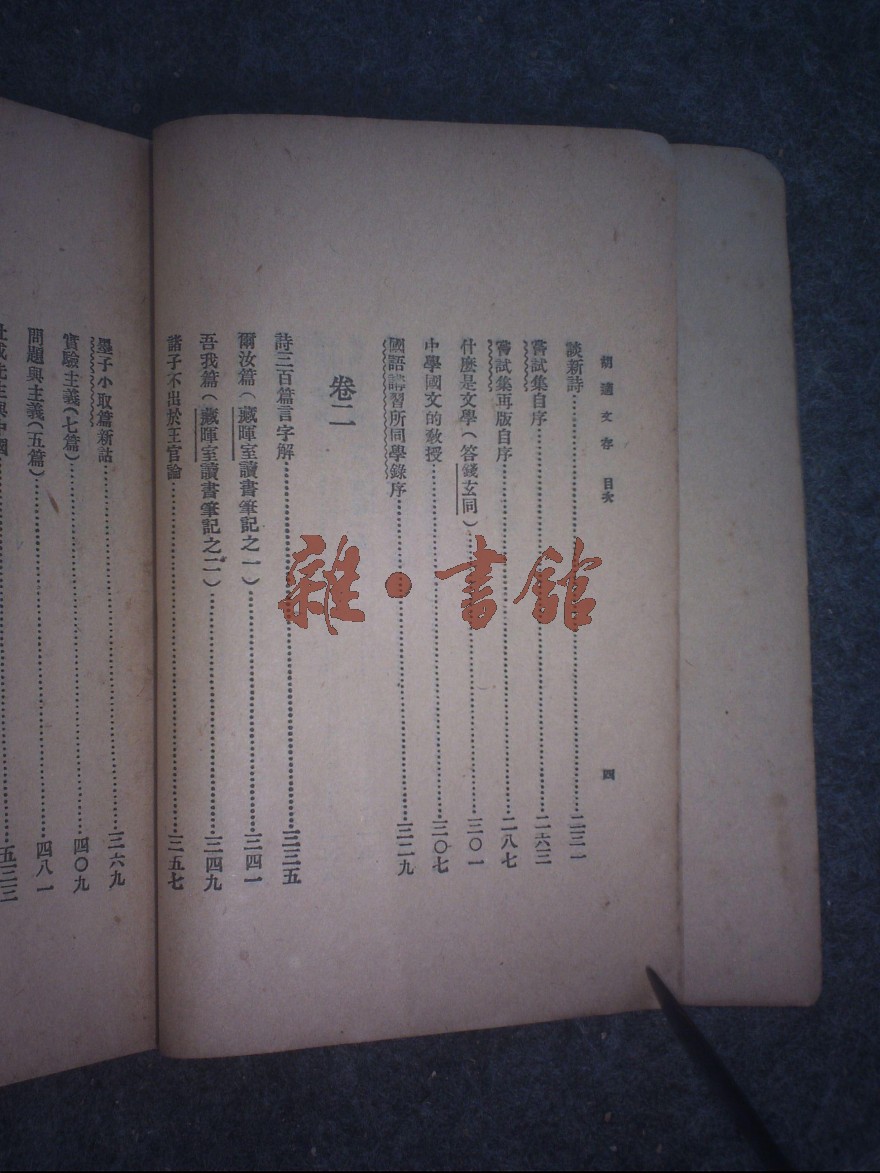 胡適文存 目次 四
談新詩……二三一
嘗試集自序……二六三
嘗試集再版自序……二八七
什麼是文學(答錢玄同)……三〇一
中學國文的教授……三〇七
國語講習所同學錄序……三二九
卷二
詩三百篇言字解……三三五
爾汝篇(藏暉室讀書筆記之一)……三四一
吾我篇(藏暉室讀書筆記之二)……三四九
諸子不出於王官論……三五七
墨子小取篇新詁……三六九
實驗主義(七篇)……四〇九
問題與主義(五篇)……四八一
杜威先生與中國……五三三
雜·書館